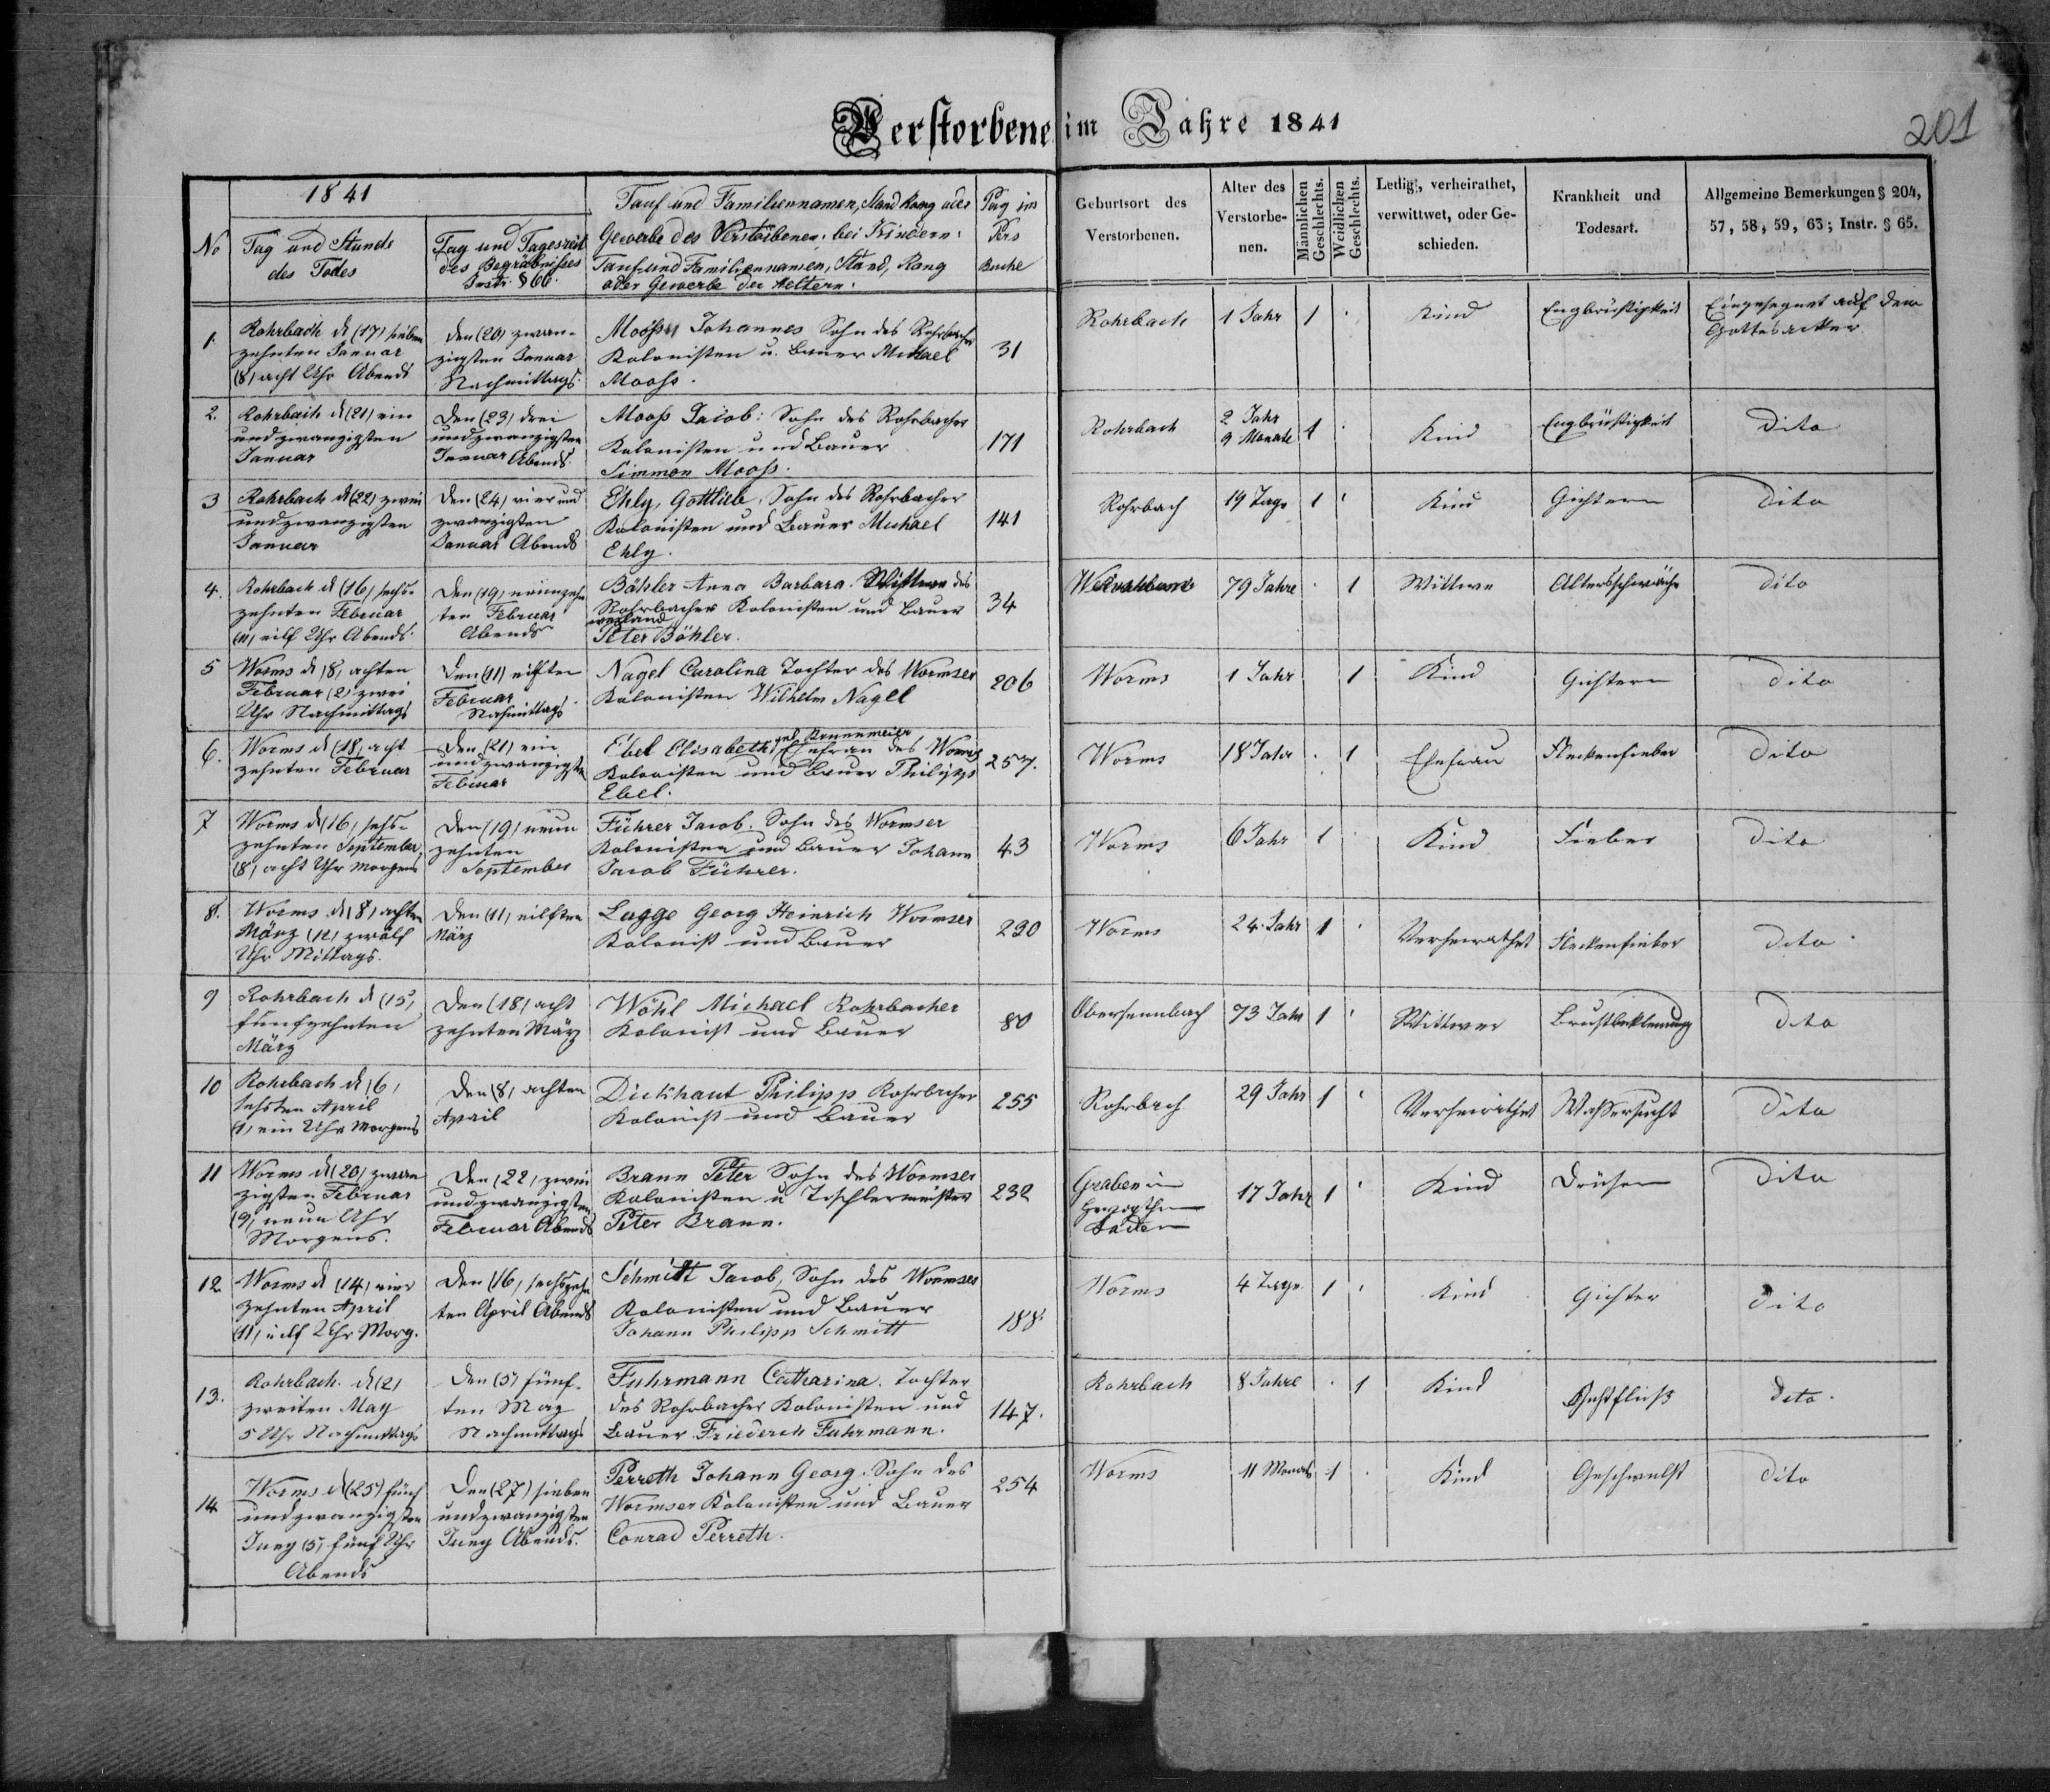 Verstorbene im Jahre 1841
201
1841
No
Tag und Stunde
des Todes
Tag und Tageszeit
des Begräbnisses
Instr. § 66.
Tauf und Familiennamen, Stand Rang oder
Gewerbe des Verstorbenen: bei Kindern:
Tauf und Familiennamen, Stand, Rang
oder Gewerbe der Aeltern.
Pag im
Pers
Buche
Geburtsort des
Verstorbenen.
Alter des
Verstorbe-
nen.
Männlichen
Geschlechts.
Weidlichen
Geschlechts.
Ledig, verheirathet,
verwittwet, oder Ge-
schieden.
Krankheit und
Todesart.
Allgemeine Bemerkungen § 204,
57, 58, 59, 63; Instr. § 65.
1.
Rohrbach d (17) sieben
zehnten Januar
(8) acht Uhr Abends
den (20) zwan-
zigsten Januar
Nachmittags
Mooss Johannes Sohn des Rohrbacher
Kolonisten u. Bauer Michael
Mooss.
31
Rohrbach
1 Jahr
1
Kind
Engbrüstigkeit
Eingesegnet auf dem
Gottesacker
2.
Rohrbach d (21) ein
und zwanzigsten
Januar
den (23) drei
und zwanzigsten
Januar Abends.
Mooss Jacob: Sohn des Rohrbacher
Kolonisten und Bauer
Simmon Mooss.
171
Rohrbach
2 Jahr
9 Monate
1
Kind
Engbrüstigkeit
Dito
3
Rohrbach d (22) zwei
und zwanzigsten
Januar
den (24) vier und
zwanzigsten
Januar Abends
Ehly, Gottlieb, Sohn des Rohrbacher
Kolonisten und Bauer Michael
Ehly.
141
Rohrbach
19 Tage
1
Kind
Gichtern
Dito
4.
Rohrbach d (16) sechs-
zehnten Februar
(11) eilf Uhr Abends.
den (19) neunzehn
ten Februar
Abends
Böhler Anna Barbara. Wittwe des
Rohrbacher Kolonisten und Bauer
weyland
Peter Böhler.
34
79 Jahre
1
Wittwe
Altersschwäche
Dito
5
Worms d (8) achten
Februar (2) zwei
Uhr Nachmittags
den (11) eilften
Februar
Nachmittags
Nagel Carolina Tochter des Wormser
Kolonisten Wilhelm Nagel
206
Worms
1 Jahr
1
Kind
Gichtern
Dito
6.
Worms d (18) acht
zehnten Februar
den (21) ein
und zwanzigsten
Februar
geb. Brunnemeier
Ebel Elisabeth, Ehefrau des Worms
Kolonisten und Bauer Philipp
Ebel.
257.
Worms
18 Jahr
1
Ehefrau
Fleckenfieber
Dito
7
Worms d (16) sechs-
zehnten September
(8) acht Uhr morgens
den (19) neun
zehnten
September
Führer Jacob. Sohn des Wormser
Kolonisten und Bauer Johann
Jacob Führer.
43
Worms
6 Jahr
1
Kind
Fieber
Dito
8.
Worms d (8) achten
März (12) zwölf
Uhr Mittags.
den (11) eilften
März
Lagge Georg Heinrich Wormser
Kolonist und Bauer
230
Worms
24. Jahr
1
Verheirathet
Fleckenfieber
Dito
9
Rohrbach d (15)
fünfzehnten
März
den (18) acht
zehnten März
Wöhl Michael Rohrbacher
Kolonist und Bauer
80
Obersennbach
73 Jahr
1
Wittwer
Brustbeklemung
Dito
10
Rohrbach d (6)
sechsten April
(1) ein Uhr Morgens
den (8) achten
April
Dickhaut Philipp Rohrbacher
Kolonist und Bauer
255
Rohrbach
29 Jahr
1
Verheirathet
Wassersucht
Dito
11
Worms d (20) zwan
zigsten Februar
(9) neun Uhr
Morgens.
den (22) zwei
und zwanzigsten
Februar Abends
Brann Peter Sohn des Wormser
Kolonisten u Tischlermeister
Peter Brann.
232
Graben im
Baden
17 Jahr
1
Kind
Drüsen
Dito
12.
Worms d (14) vier
zehnten April
(11) eilf Uhr Morg.
den (16) sechszehn
ten April Abends
Schmitt Jacob, Sohn des Wormser
Kolonisten und Bauer
Johann Philipp Schmitt
188.
Worms
4 Tage.
1
Kind
Gichter
Dito
13.
Rohrbach. d (2)
zweiten May
5 Uhr Nachmittags
den (5) fünf-
ten May
Nachmittags
Fuhrmann Catharina. Tochter
des Rohrbacher Kolonisten und
Bauer Friederich Fuhrmann.
147.
Rohrbach
8 Jahre
1
Kind
dito.
14
Worms d (25) fünf
und zwanzigsten
Juny (5) fünf Uhr
Abends
den (27) sieben
und zwanzigsten
Juny Abends.
Perreth Johann Georg. Sohn des
Wormser Kolonisten und Bauer
Conrad Perreth.
254
Worms
11 Monats
1
Kind
Geschwulst
dito